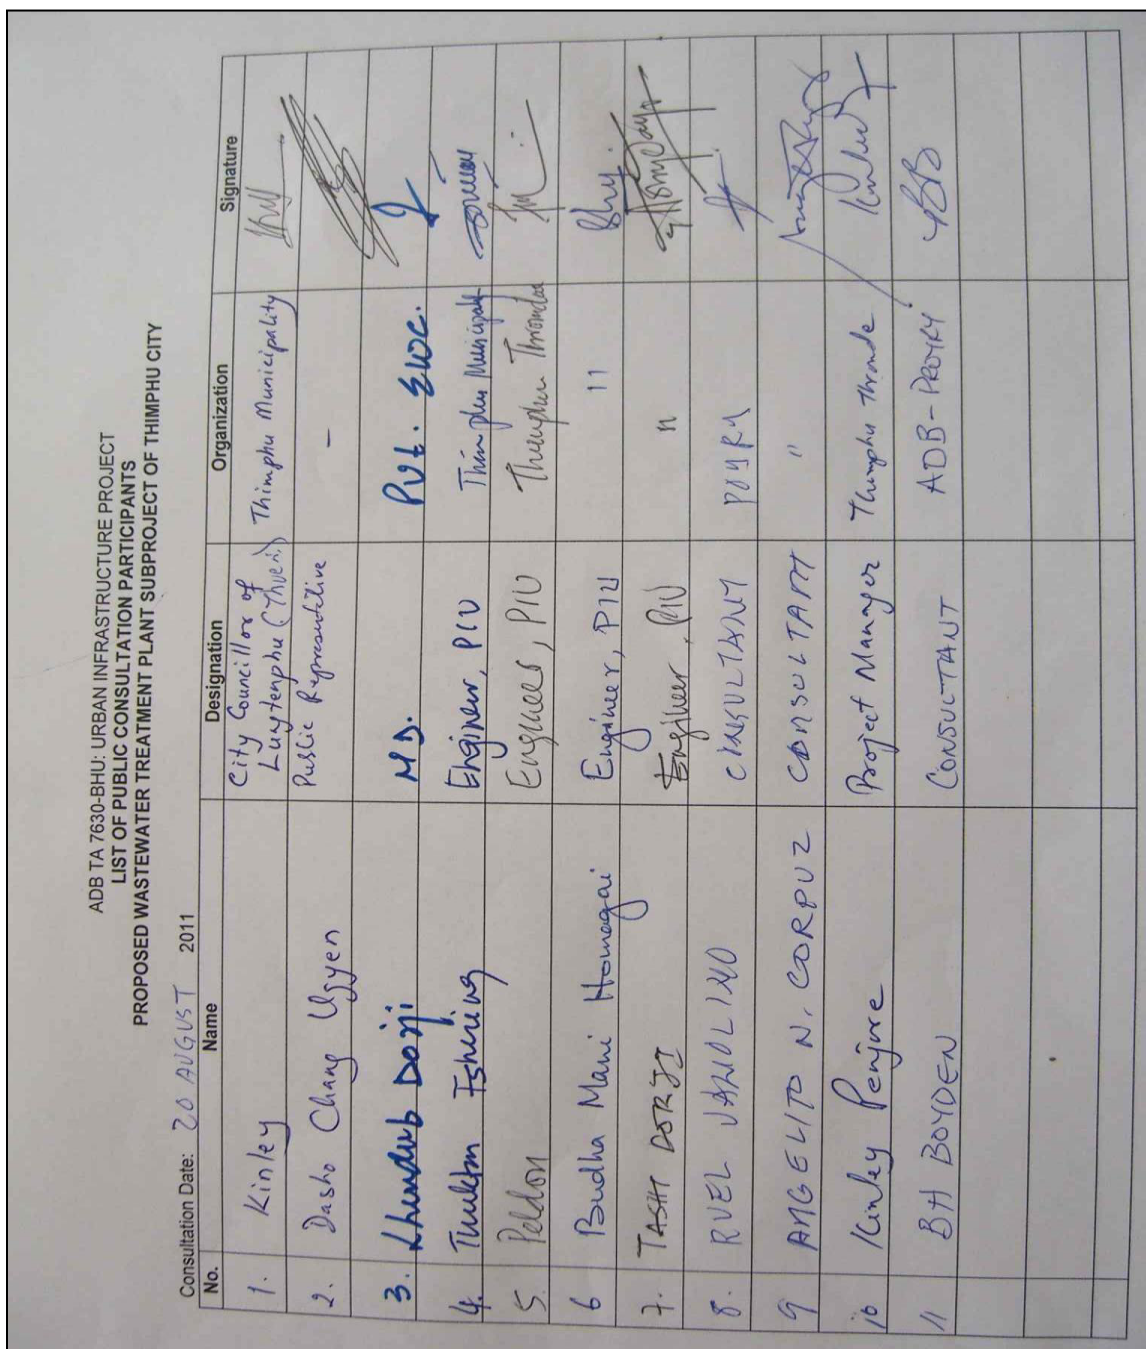 ADB TA 7630-BHU: URBAN INFRASTRUCTURE PROJECT
LIST OF PUBLIC CONSULTATION PARTICIPANTS
PROPOSED WASTEWATER TREATMENT PLANT SUBPROJECT OF THIMPHU CITY
Consultation Date: 20 AUGUST 2011
No. Name Designation Organization Signature
1. Kinley City Councillor of Thimphu Municipality
Lungtenphu
2. Dasho Chang Ugyen Public Representative -
3. Khendub Dorji M.D. Pvt. EWC.
4. Thukten Tshering Engineer, PIU Thimphu Municipality
5. Peldon Engineer, PIU Thimphu Thromde
6 Budha Mani Homagai Engineer, PIU 11
7. TASHI DORJI Engineer, PIU "
8. RUEL CONSULTANT POYRY
9 ANGELITO N. CORPUZ CONSULTANT "
10 Kinley Penjore Project Manager Thimphu Thromde
11 BH BOYDEN CONSULTANT ADB-POYRY